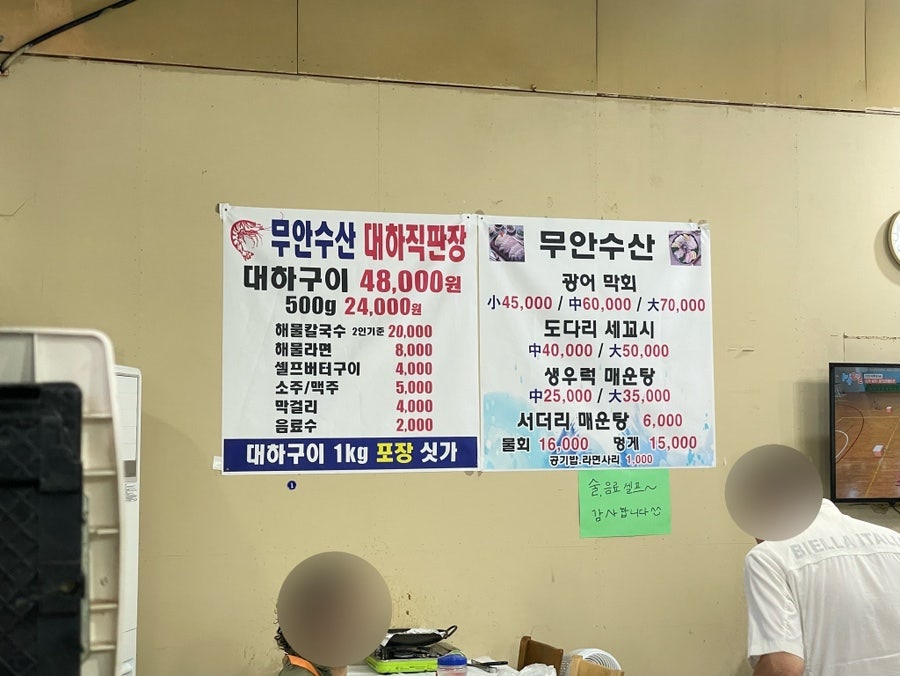 무안수산 대하직판장
대하구이 48,000원
500g 24,000원
해물칼국수 2인기준 20,000
해물라면 8,000
셀프버터구이 4,000
소주/맥주 5,000
막걸리 4,000
음료수 2,000
대하구이 1kg 포장 싯가
무안수산
광어 막회
小45,000 / 中60,000 / 大70,000
도다리 세꼬시
中40,000 / 大50,000
생우럭 매운탕
中25,000 / 大35,000
서더리 매운탕 6,000
물회 16,000 멍게 15,000
공기밥.라면사리 1,000
술,음료 셀프~
감사합니다
BIELLA ITALI